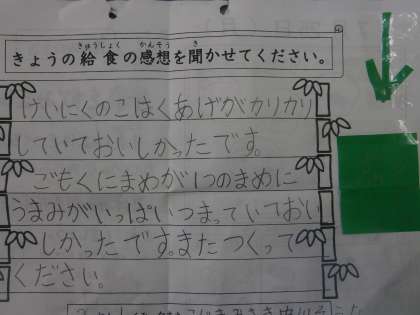 きょうの給食の感想を聞かせてください。
けいにくのこはくあげがカリカリ
していておいしかったです。
ごもくにまめが1つのまめに
うまみがいっぱいつまっていておい
しかったです。またつくって
ください。